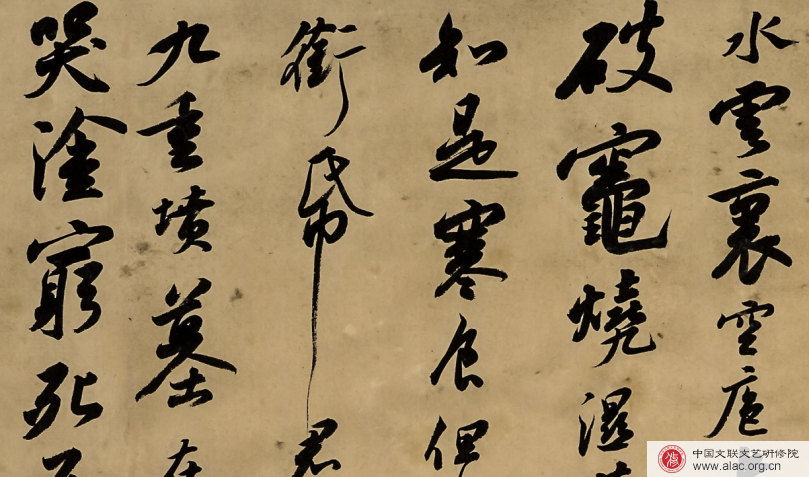 水雲裏空庖
破竈燒濕
知是寒食但
銜帋君
九重墳墓在
哭塗窮死
中国文联文艺研修院
www.alac.org.cn